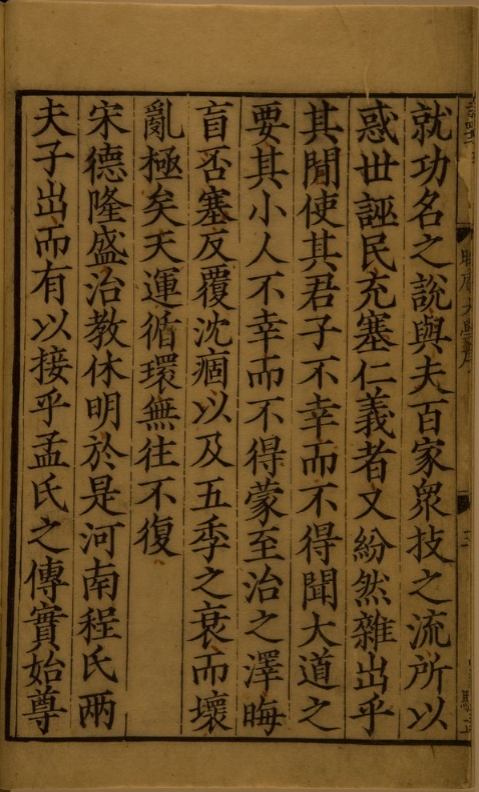 就功名之說與夫百家衆技之流所以
惑世誣民充塞仁義者又紛然雜出乎
其閒使其君子不幸而不得聞大道之
要其小人不幸而不得蒙至治之澤晦
盲否塞反覆沈痼以及五季之衰而壞
亂極矣天運循環無往不復
宋德隆盛治教休明於是河南程氏兩
夫子出而有以接乎孟氏之傳實始尊